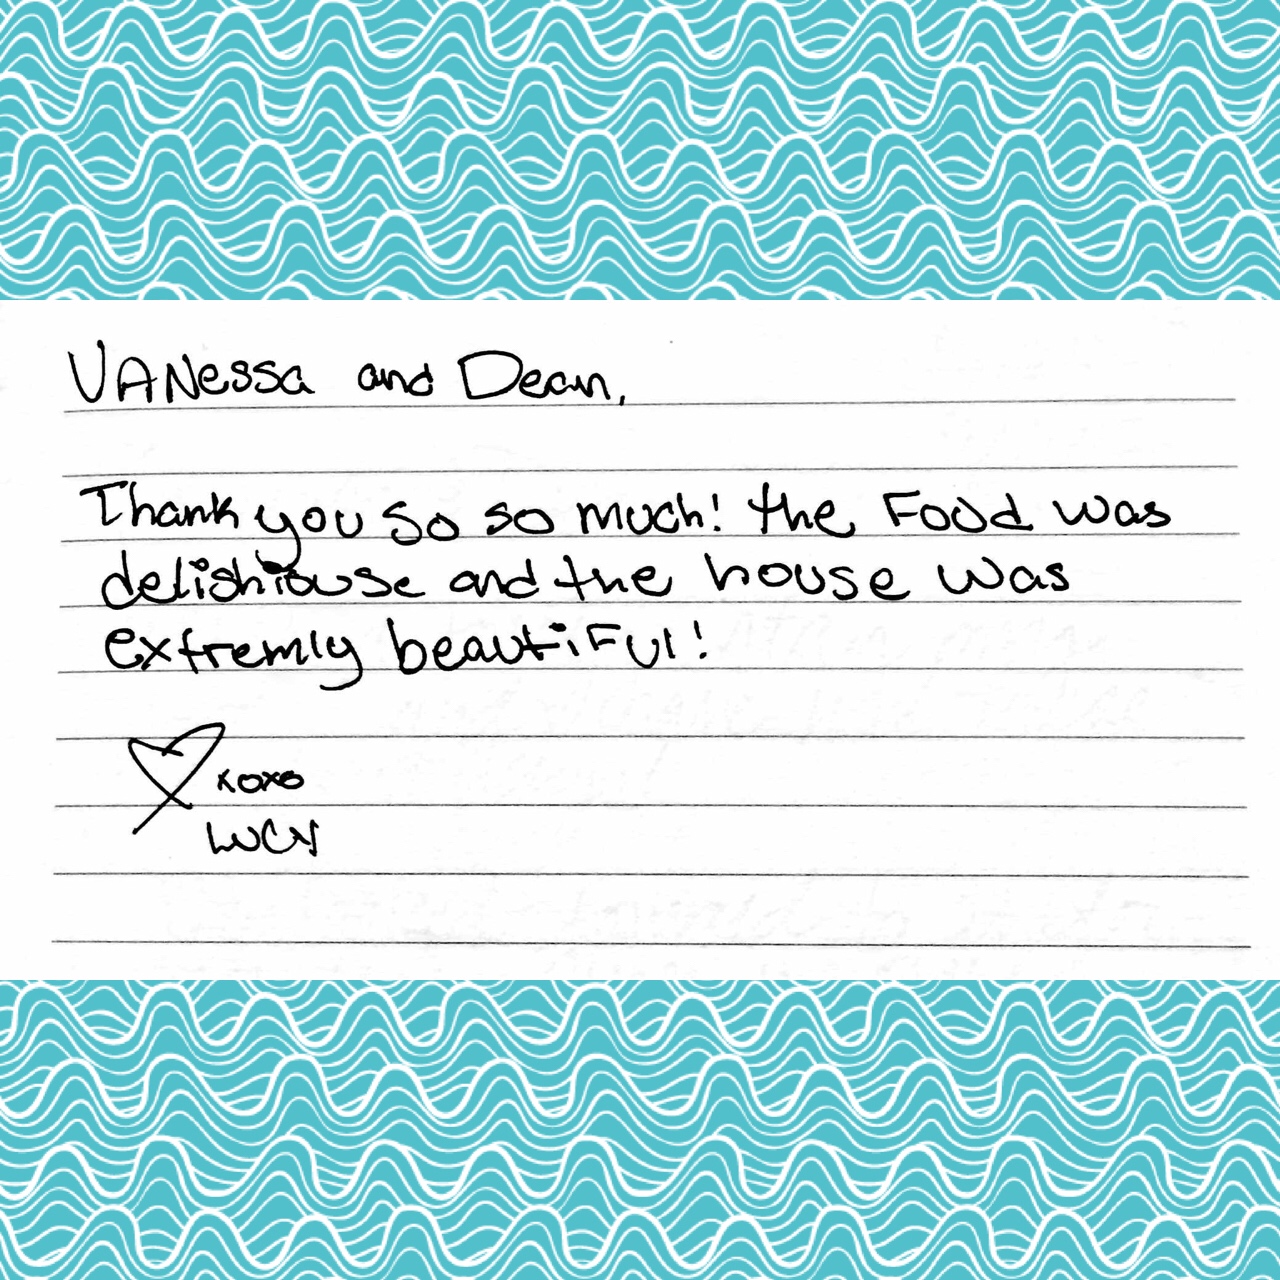 VANessa and Dean,
Thank you so so much! the Food was
delishiouse and the house was
extremly beautiFul!
xoxo
LUCY